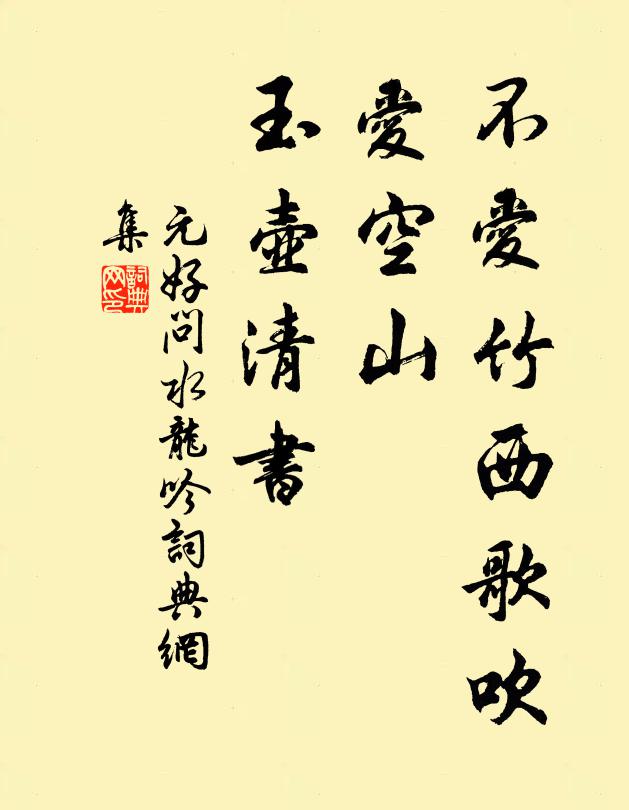 不愛竹西歌吹
愛空山
玉壺清書
元好問水龍吟詞典網
集
詞典
网印